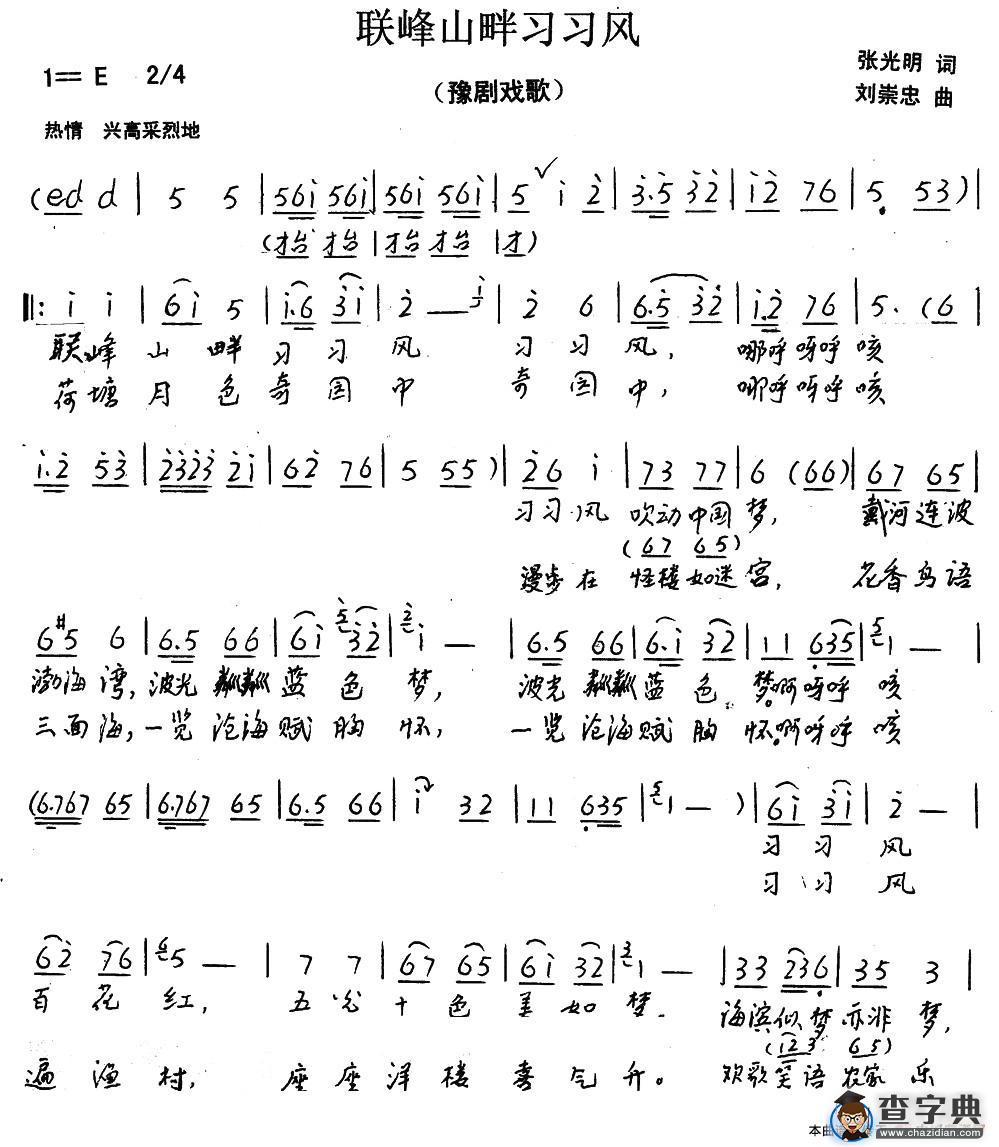 联峰山畔习习风
1= E 2/4
（豫剧戏歌）
张光明 词
刘崇忠 曲
热情 兴高采烈地
(ed d | 5 5 | 56i 56i | 56i 56i | 5 i 2 | 3.5 32 | i2 76 | 5. 53 ) |
(才台 才台 | 才台 才台 | 才)
||: i i | 6i 5 | i.6 3i | 2 — | 2 6 | 6.5 32 | i.2 76 | 5. (6 |
联峰山畔习习风 习习风, 哪呼呀呼咳
荷塘月色奇园中 奇园中, 哪呼呀呼咳
i.2 53 | 2323 2i | 62 76 | 5 55 ) | 26 i | 73 77 | 6 (66) | 67 65 |
习习风 吹动中国梦, 戴河连波
(67 65)
漫步在 怪楼如迷宫, 花香鸟语
6#5 6 | 6.5 66 | 6i 32 | i — | 6.5 66 | 6.i 32 | 11 635 | 1 — |
渤海湾, 波光粼粼蓝色梦, 波光粼粼蓝色梦啊呀呼咳
三面海, 一览沧海赋胸怀, 一览沧海赋胸怀啊呀呼咳
(6.767 65 | 6.767 65 | 6.5 66 | i 32 | 11 635 | 1 — ) | 6i 3i | 2 — |
习习风
习习风
62 76 | 5 — | 7 7 | 67 65 | 6i 32 | 1 — | 33 236 | 35 3 |
百花红, 五光十色美如梦. 海滨似梦亦非梦,
(123 65)
遍渔村, 座座洋楼喜气升。 欢歌笑语农家乐
本曲
查字典
www.chazidian.com